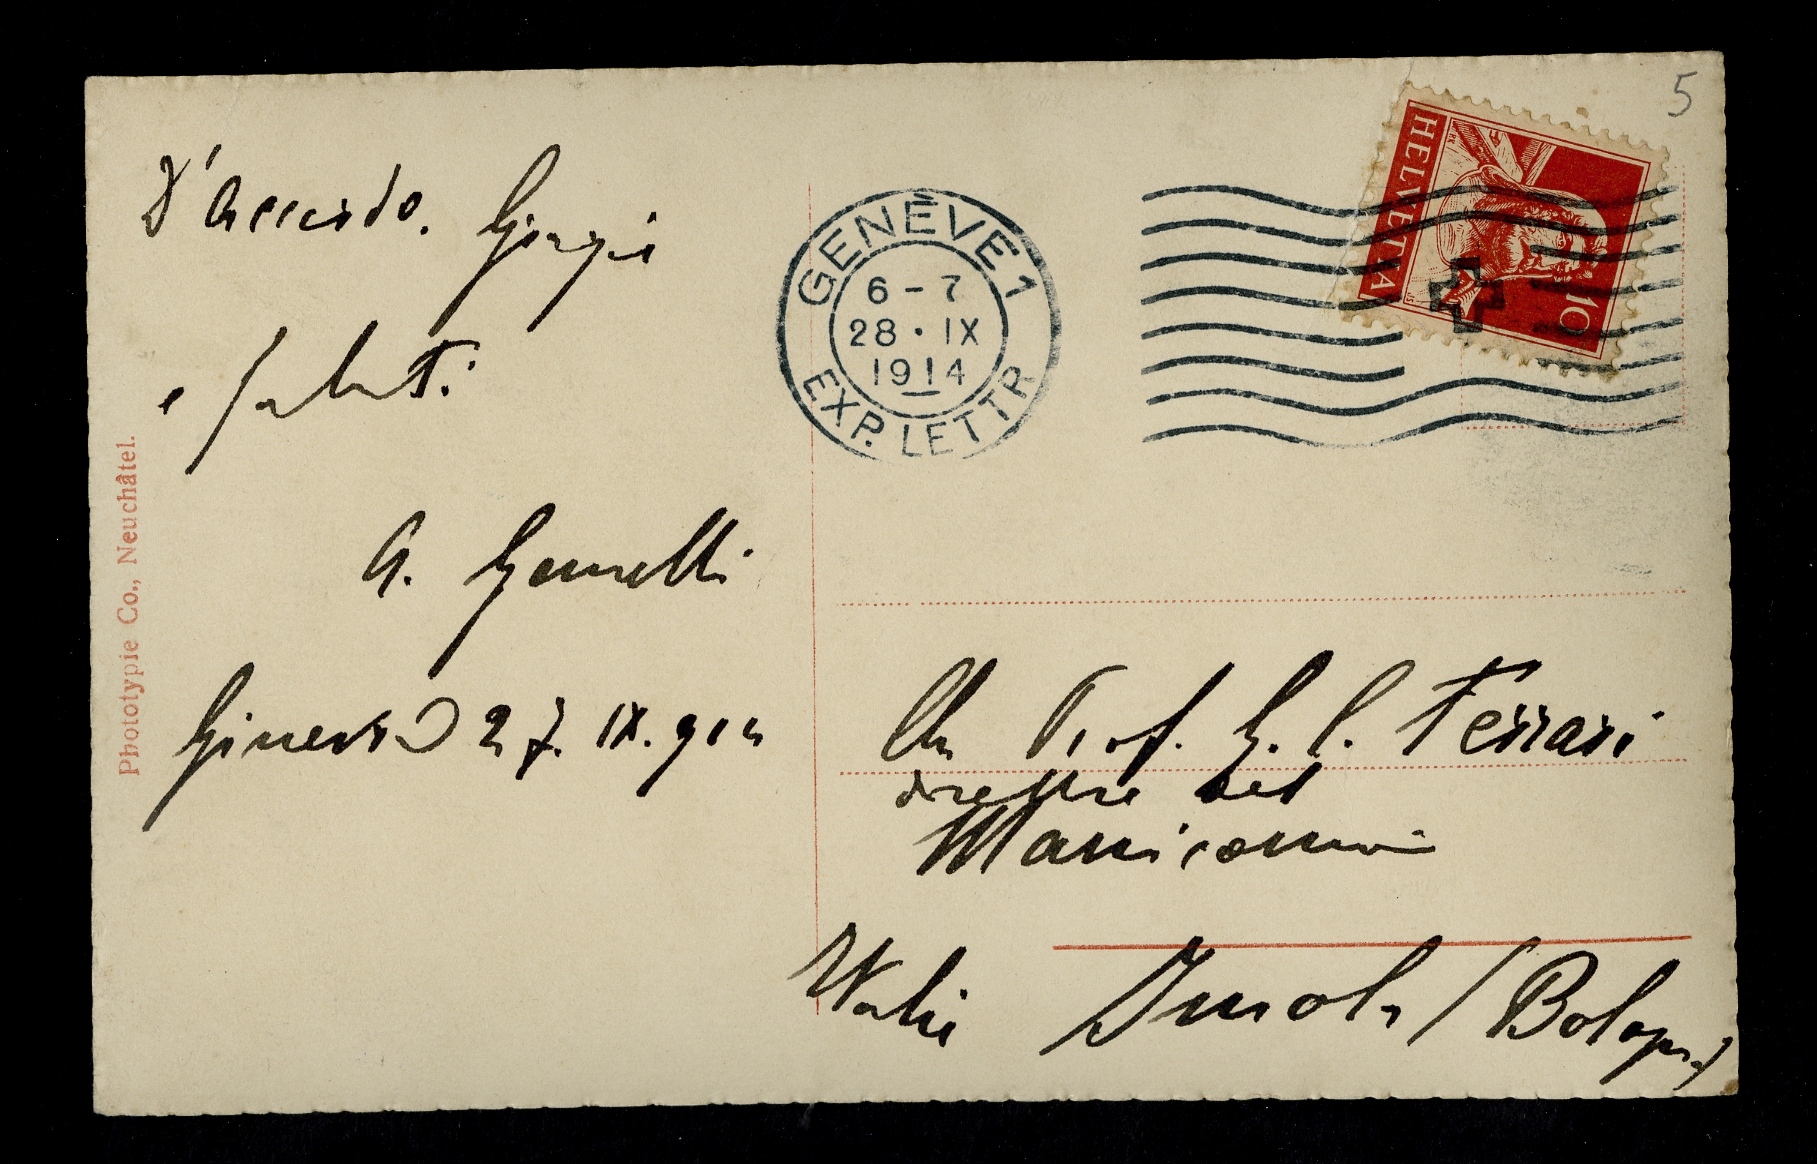 D'accordo. Grazie
e saluti
A. Gemelli
Ginevra 27. IX. 914
Phototypie Co., Neuchâtel.
GENÈVE 1
6 – 7
28 · IX
1914
EXP. LETTR
HELVETIA
10
5
Ch Prof. G. C. Ferrari
direttore del
Manicomio
Italia Imola (Bologna)